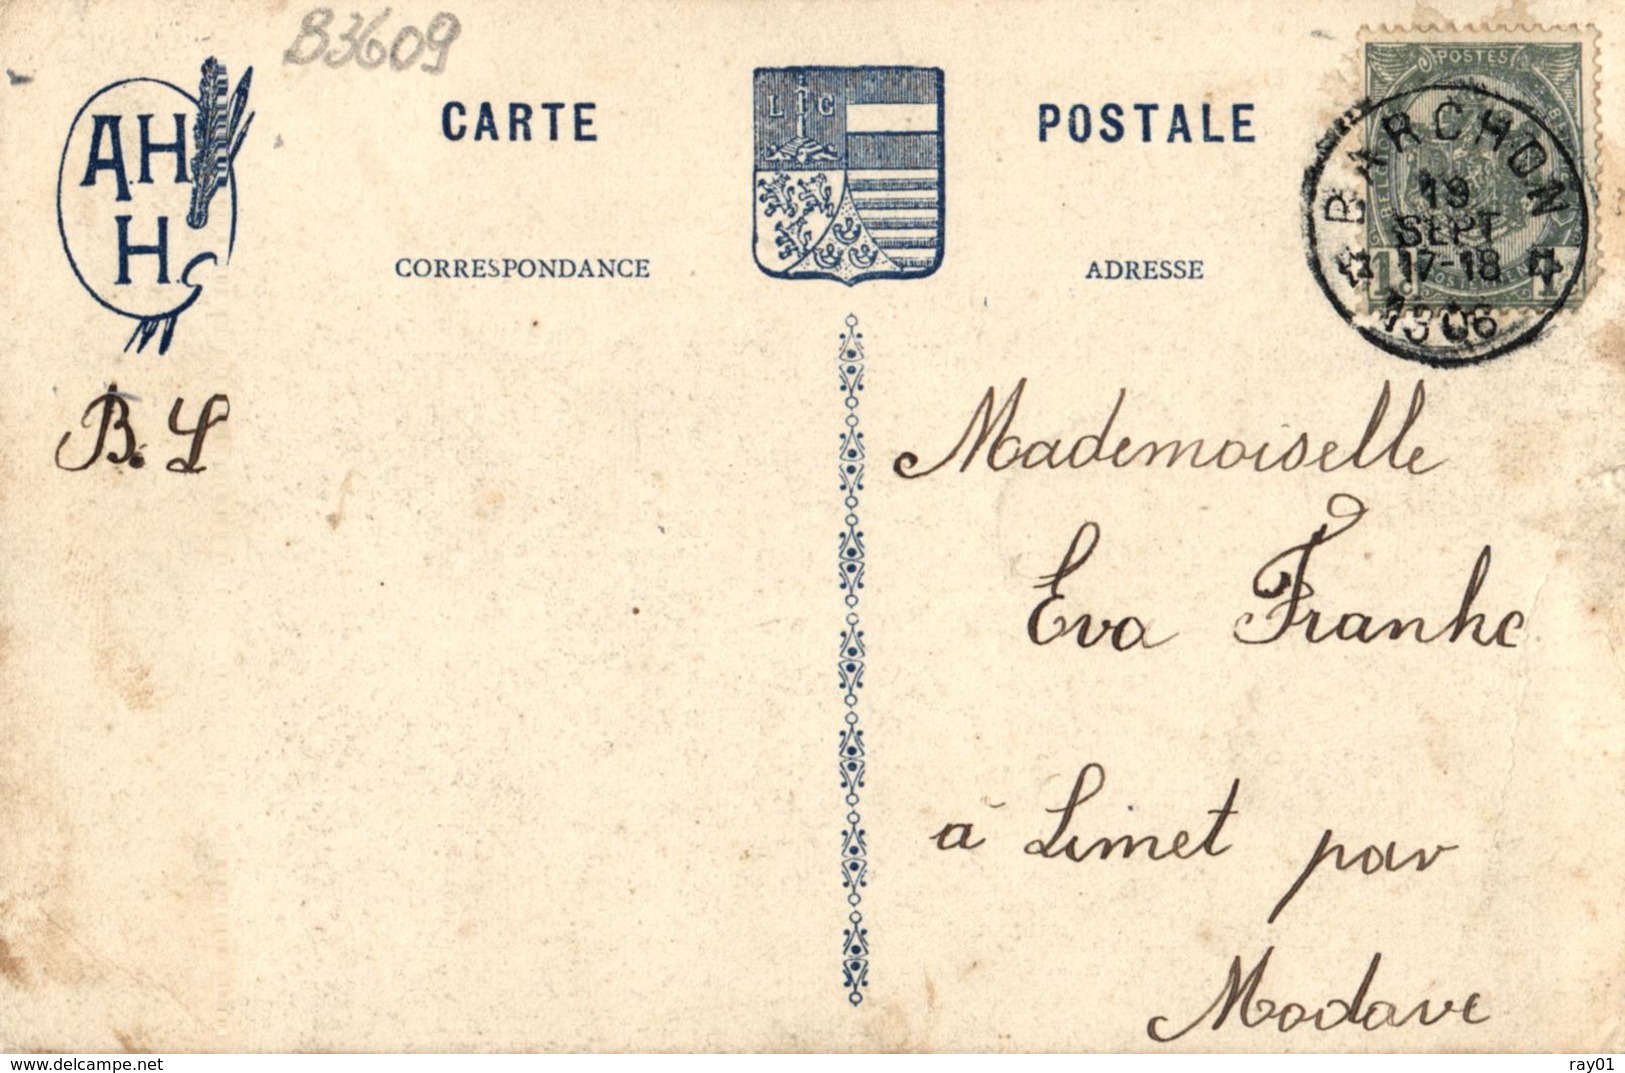 B3609
A.H
H.
CARTE POSTALE
L G
CORRESPONDANCE
ADRESSE
POSTES
BARCHON
19
SEPT
17-18
1906
B. L
Mademoiselle
Eva Franke
à Limet par
Modave
www.delcampe.net
ray01